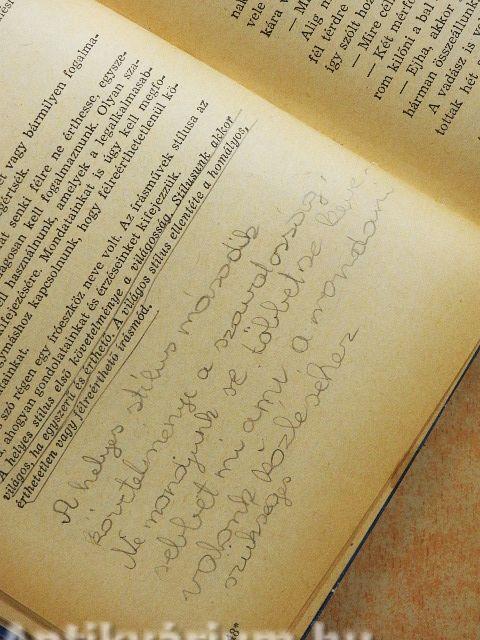 et vagy bármilyen fogalma-
gértsék.
at, senki félre ne érthesse, egysze-
lágosan kell fogalmaznunk. Olyan sza-
ell használnunk, amelyek a legalkalmasab-
kifejezésére. Mondatainkat is úgy kell megfo-
lymáshoz kapcsolnunk, hogy félreérthetetlenül kö-
latainkat.
s szó régen egy íróeszköz neve volt. Az írásművek stílusa az
a, ahogyan gondolatainkat és érzéseinket kifejezzük.
A helyes stílus első követelménye a világosság. Stílusunk akkor
világos, ha egyszerű és érthető. A világos stílus ellentéte a homályos,
érthetetlen vagy félreérthető írásmód.
A helyes stílus második
követelménye a szabatosság,
Ne mondjunk se többet se keve-
sebbet mi ami a mondani
valónk közléséhez
szükséges
48*
nak
vele
kára v
— M
Alig n
fél térdre
így szólt hoz
— Mire cél
— Két mérfö
rom kilőni a bal
— Ejha, akkor
hárman összeállunk
A vadász is va
tottak hét
Antikvárium.hu